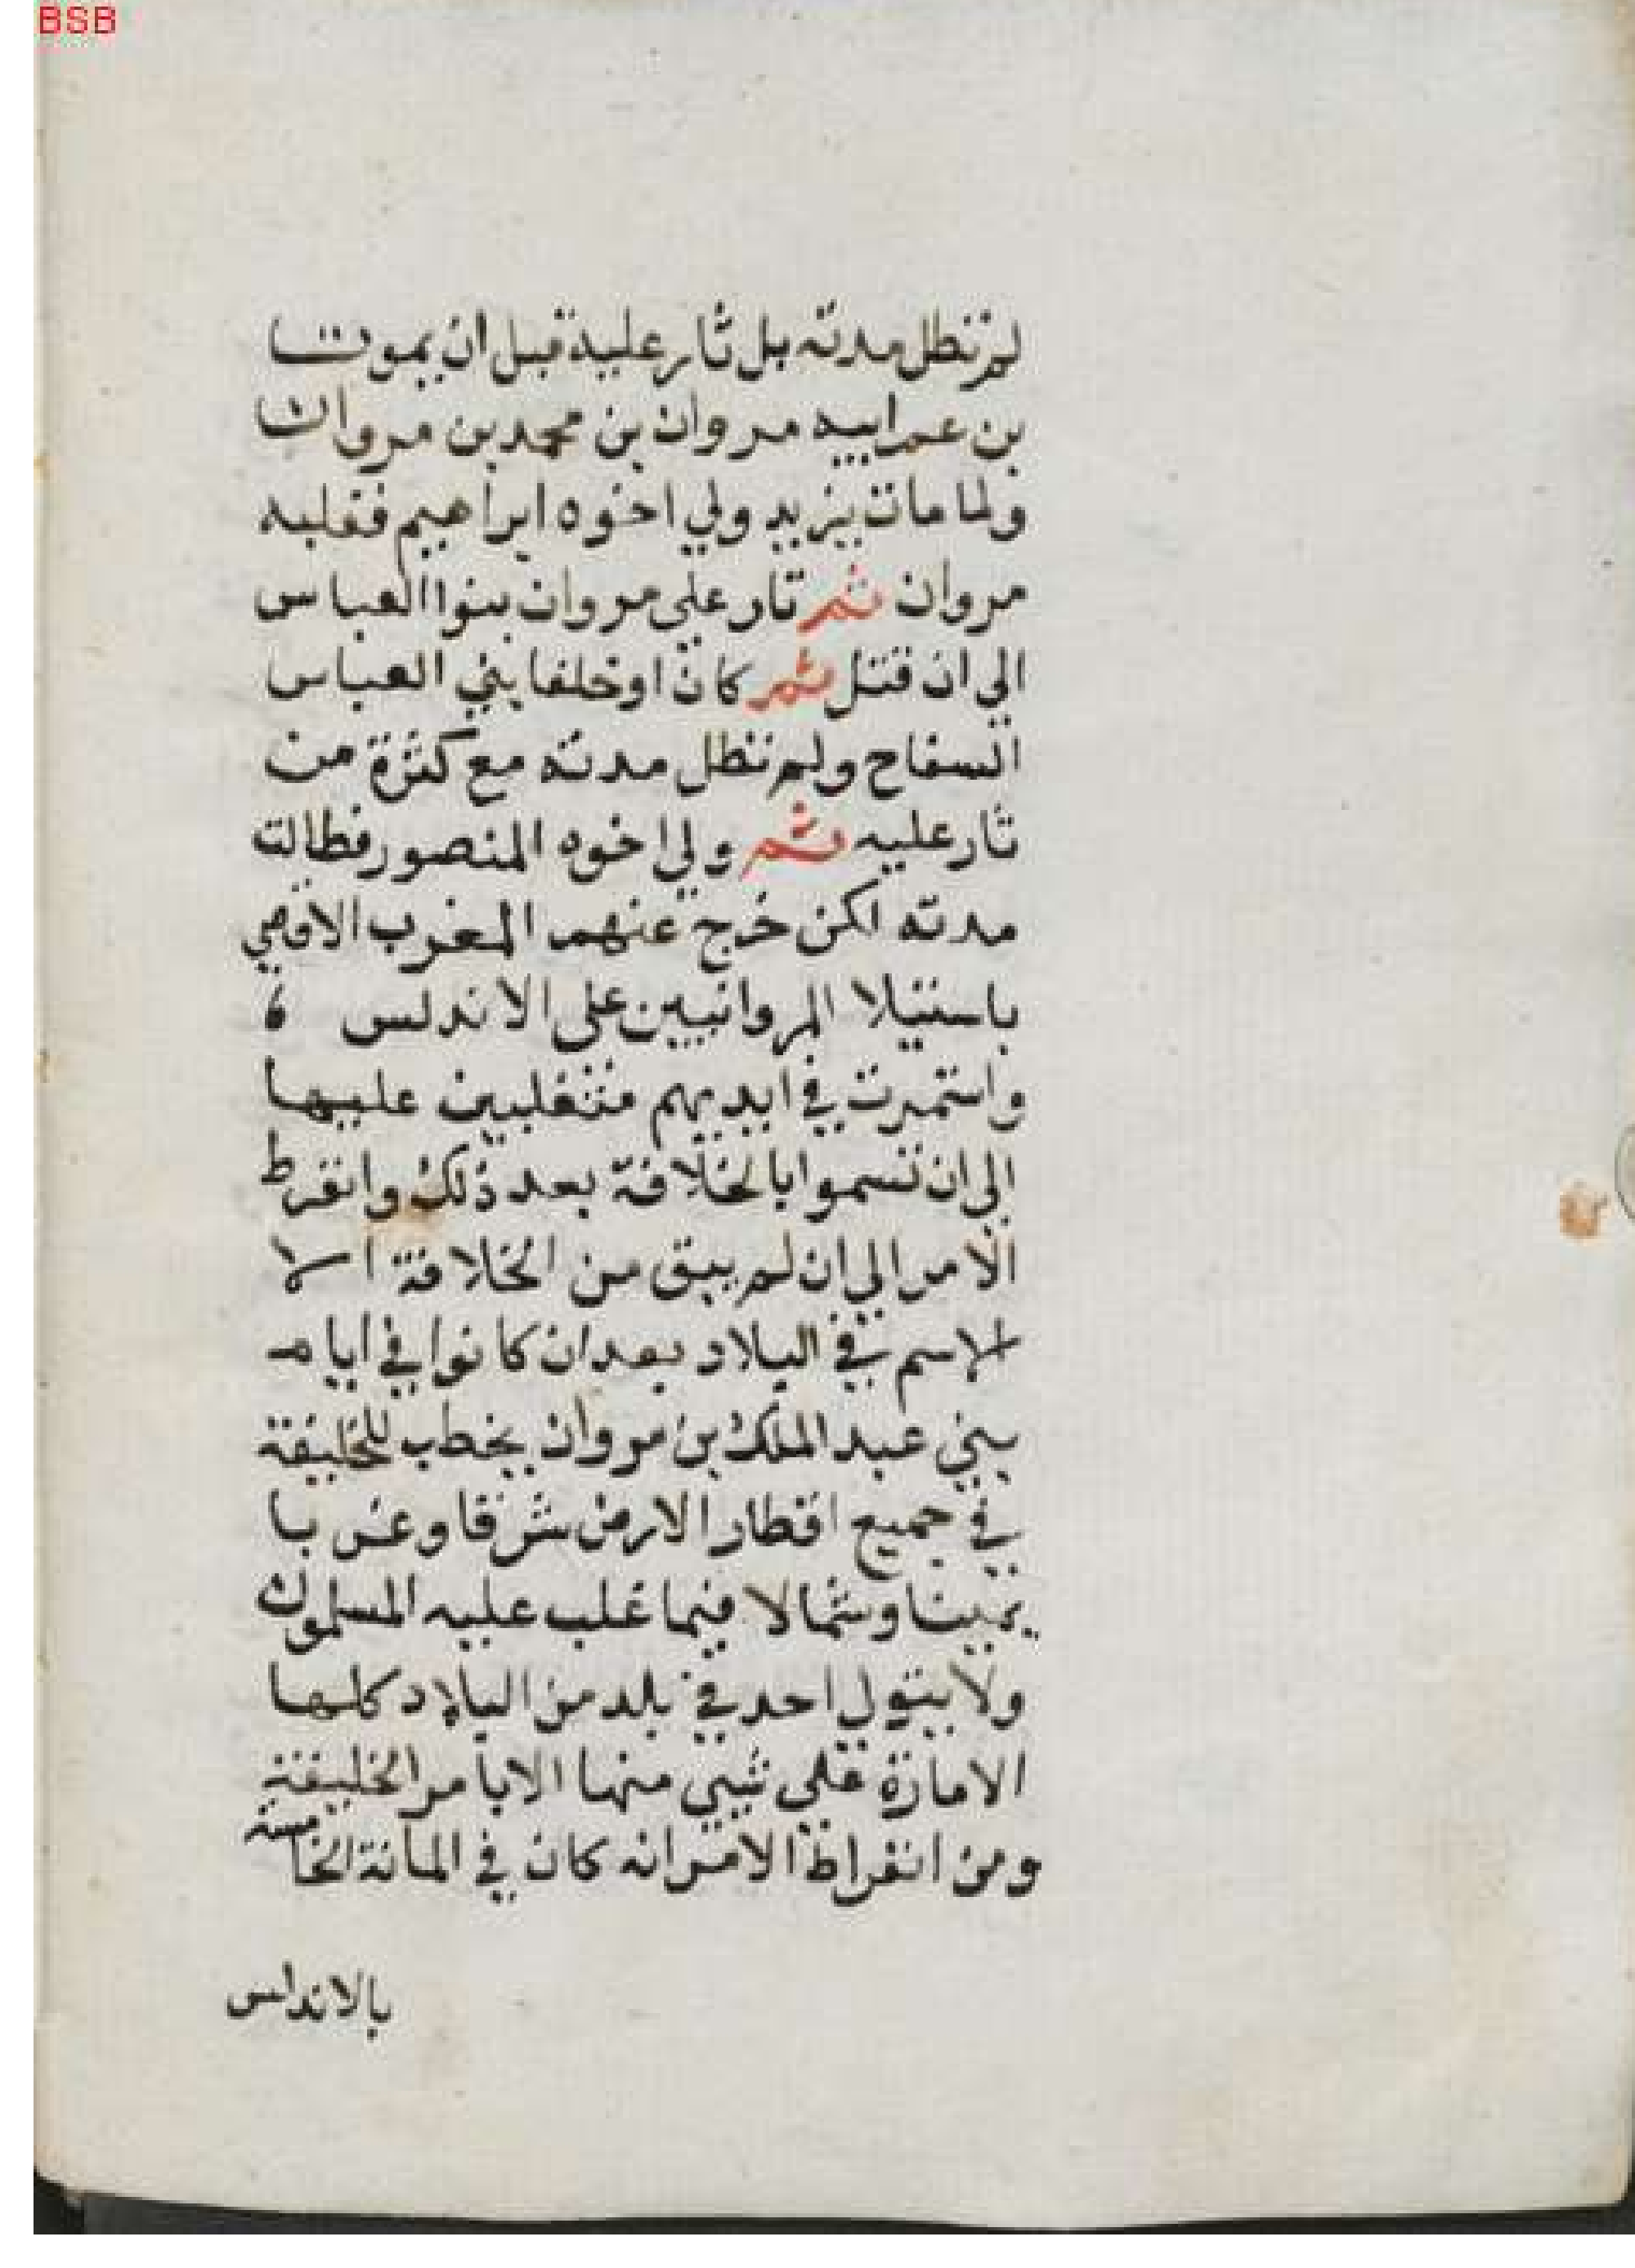 BSB
لم تطل مدته بل ثار عليه قبل ان يموت
بن عم ابيه مروان بن محمد بن مروان
ولما مات يزيد ولي اخوه ابراهيم فغلبه
مروان ثم تار علي مروان بنوا العباس
الي ان قتل ثم كان او خلفا بني العباس
السفاح ولم تطل مدته مع كثرة من
ثار عليه ثم ولي اخوه المنصور فطالت
مدته لكن خرج عنهم المغرب الاقصي
باستيلا المروانيين علي الاندلس
واستمرت في ايديهم متغلبين عليها
الي ان تسموا بالخلافة بعد ذلك وانفرط
الامر الي ان لم يبق من الخلافة الا
الاسم في البلاد بعد ان كانوا في ايام
بني عبد الملك بن مروان يخطب للخليفة
في جميع اقطار الارض شرقا وغربا
يمينا وشمالا فيما غلب عليه المسلمون
ولا يتولي احد في بلد من البلاد كلها
الامارة علي شيي منها الا بامر الخليفة
ومن انفراط الامر انه كان في المائة الخامسة
بالاندلس